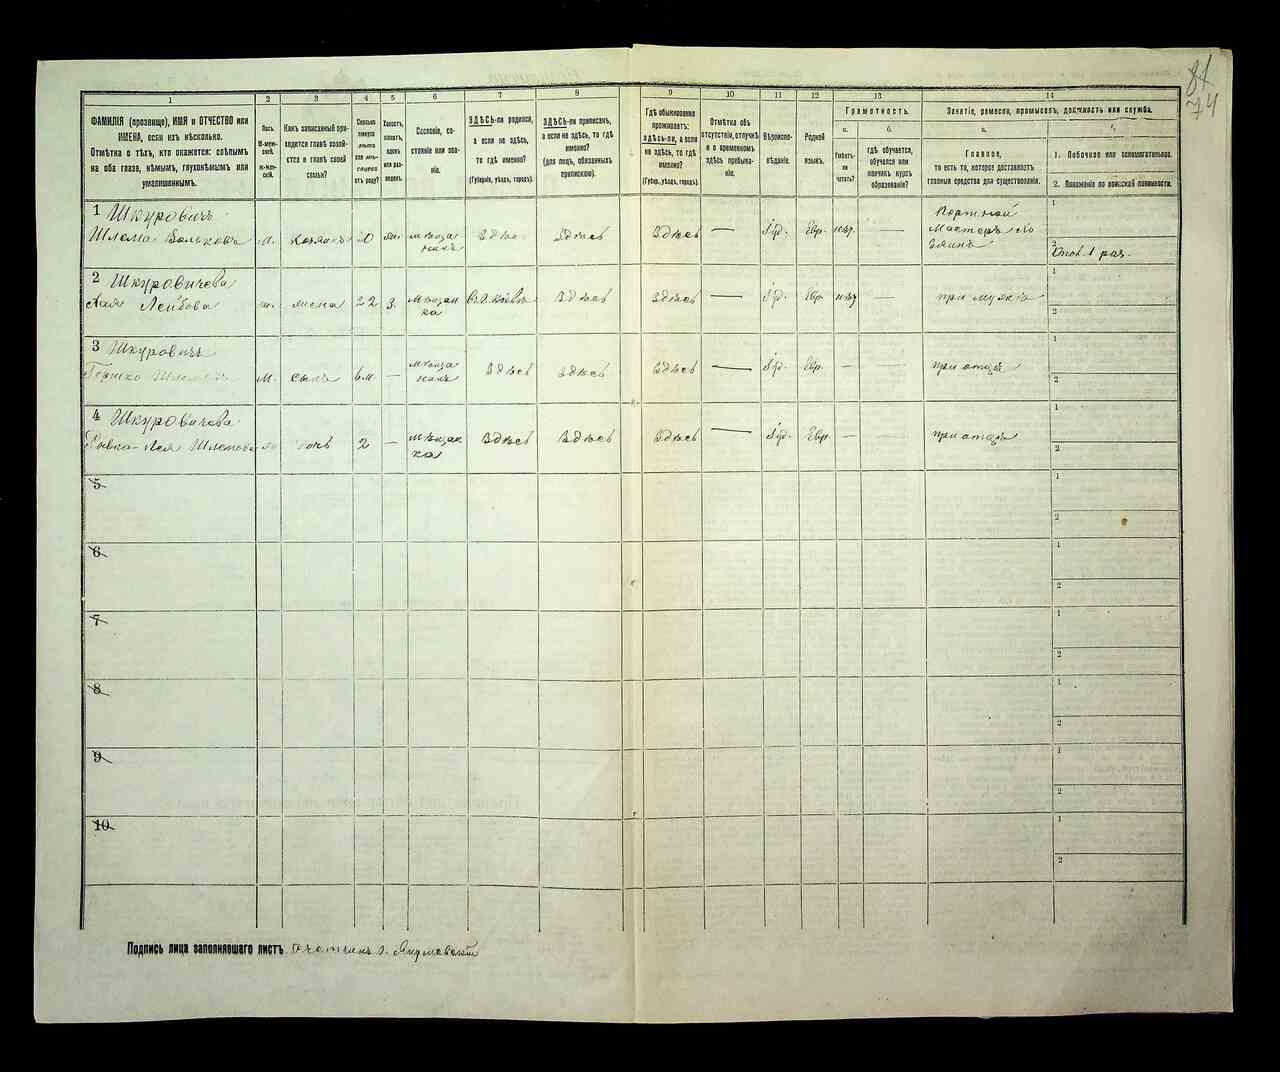 81
74
1
2
3
4
5
6
7
8
9
10
11
12
13
14
ФАМИЛІЯ (прозвище), ИМЯ и ОТЧЕСТВО или
ИМЕНА, если ихъ нѣсколько.
Отмѣтка о тѣхъ, кто окажется: слѣпымъ
на оба глаза, нѣмымъ, глухонѣмымъ или
умалишеннымъ.
Полъ.
М-муж-
ской.
Ж-жен-
скій.
Какъ записанный при-
ходится главѣ хозяй-
ства и главѣ своей
семьи?
Сколько
минуло
лѣтъ
или мѣ-
сяцевъ
отъ роду?
Холостъ,
женатъ,
вдовъ
или раз-
веденъ.
Сословіе, со-
стояніе или зва-
ніе.
ЗДѢСЬ-ли родился,
а если не здѣсь,
то гдѣ именно?
(Губернія, уѣздъ, городъ).
ЗДѢСЬ-ли приписанъ,
а если не здѣсь, то гдѣ
именно?
(для лицъ, обязанныхъ
припискою).
Гдѣ обыкновенно
проживаетъ:
здѣсь-ли, а если
не здѣсь, то гдѣ
именно?
(Губер., уѣздъ, городъ).
Отмѣтка объ
отсутствіи, отлучкѣ
и о временномъ
здѣсь пребыва-
ніи.
Вѣроиспо-
вѣданіе.
Родной
языкъ.
Грамотность.
а.
Умѣетъ-
ли
читать?
б.
гдѣ обучается,
обучался или
кончилъ курсъ
образованія?
Занятіе, ремесло, промыселъ, должность или служба.
а.
Главное,
то есть то, которое доставляетъ
главныя средства для существованія.
1. Побочное или вспомогательное.
2. Положеніе по воинской повинности.
1 Шкуровичъ
Шлема Вольковъ м. хозяинъ 30 жн. мѣща нинъ Здѣсь Здѣсь Здѣсь — Іуд. Евр. —
Портной
Мастеръ
1
2
1 раз.
2 Шкуровичева
Лейбова ж. жена 22 з. Мѣщан ка Здѣсь Здѣсь — Іуд. Евр. — при мужѣ
1
2
3 Шкуровичъ
Гершко м. сынъ 6 м — мѣща нинъ Здѣсь Здѣсь Здѣсь — Іуд. Евр. — — при отцѣ
1
2
4 Шкуровичева
Рывка-Лея Шлемова дочь 2 — Мѣщан ка Здѣсь Здѣсь Здѣсь — Іуд. Евр. — — при отцѣ
1
2
5
1
2
6
1
2
7
1
2
8
1
2
9
1
2
10
1
2
Подпись лица заполнявшаго листъ